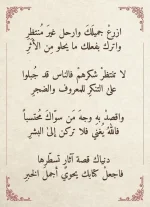 ازرعْ جميلَكَ وارحل غيرَ مُنتظِرٍ
واترك بفعلك ما يحلو منَ الأثَرِ
لا تنتظرْ شكرهمْ فالناس قد جُبلوا
على التنكّرِ للمعروف والضجرِ
واقصدْ به وجهَ من سوّاكَ مُحتسباً
فاللهُ يُغني فلا تركن إلىَ البشرِ
دنياك قصة آثارٍ تسطّرها
فاجعلْ كتابك يحوي أجملَ الخبرِ